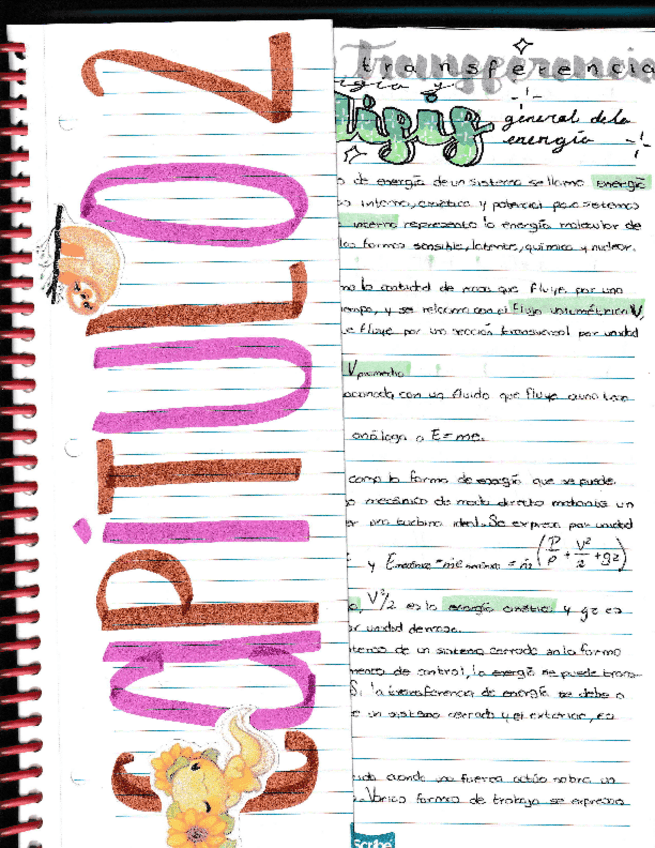 CAPiTULO 2
transferencia
Transferencia
energía y
general de la
energía
de energía de un sistema se llama energía
interna, cinética y potencial
interna representa la energía molecular de
las formas sensible, latente, química y nuclear.
la cantidad de masa que fluye por una
y se relaciona con el flujo volumétrico V,
fluye por una sección transversal por unidad
V promedio
con un fluido que fluye a una tasa
análoga a E = me.
como la forma de energía que se puede
mecánico de modo directo mediante un
una turbina ideal. Se expresa por unidad
y Emecánica = ṁe mecánica = ṁ (P/ρ + V²/2 + gz)
V²/2 es la energía cinética y gz es
unidad de masa.
de un sistema cerrado en la forma
de control, la energía se puede trans-
Si la transferencia de energía se debe a
un sistema cerrado y el exterior, es
donde una fuerza actúa sobre un
Varias formas de trabajo se expresan
Scribe